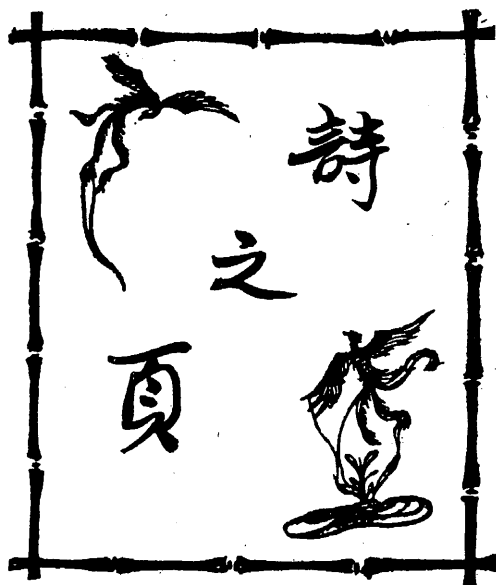 詩之頁